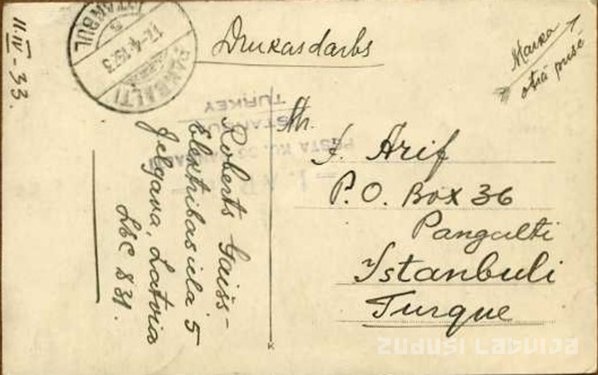 11.IV-33.
ISTANBUL
17-4-1933
PANGALTI
Drukasdarbs
Marka
otrā pusē
Mr.
I. Arif
P.O. Box 36
Pangalti
Istanbuli
Turque
Roberts Gaišs-
Elektribas iela 5
Jelgava, Latvia
LSC 831.
POSTA KU
ISTANBUL
TURKEY
zudusi latvija